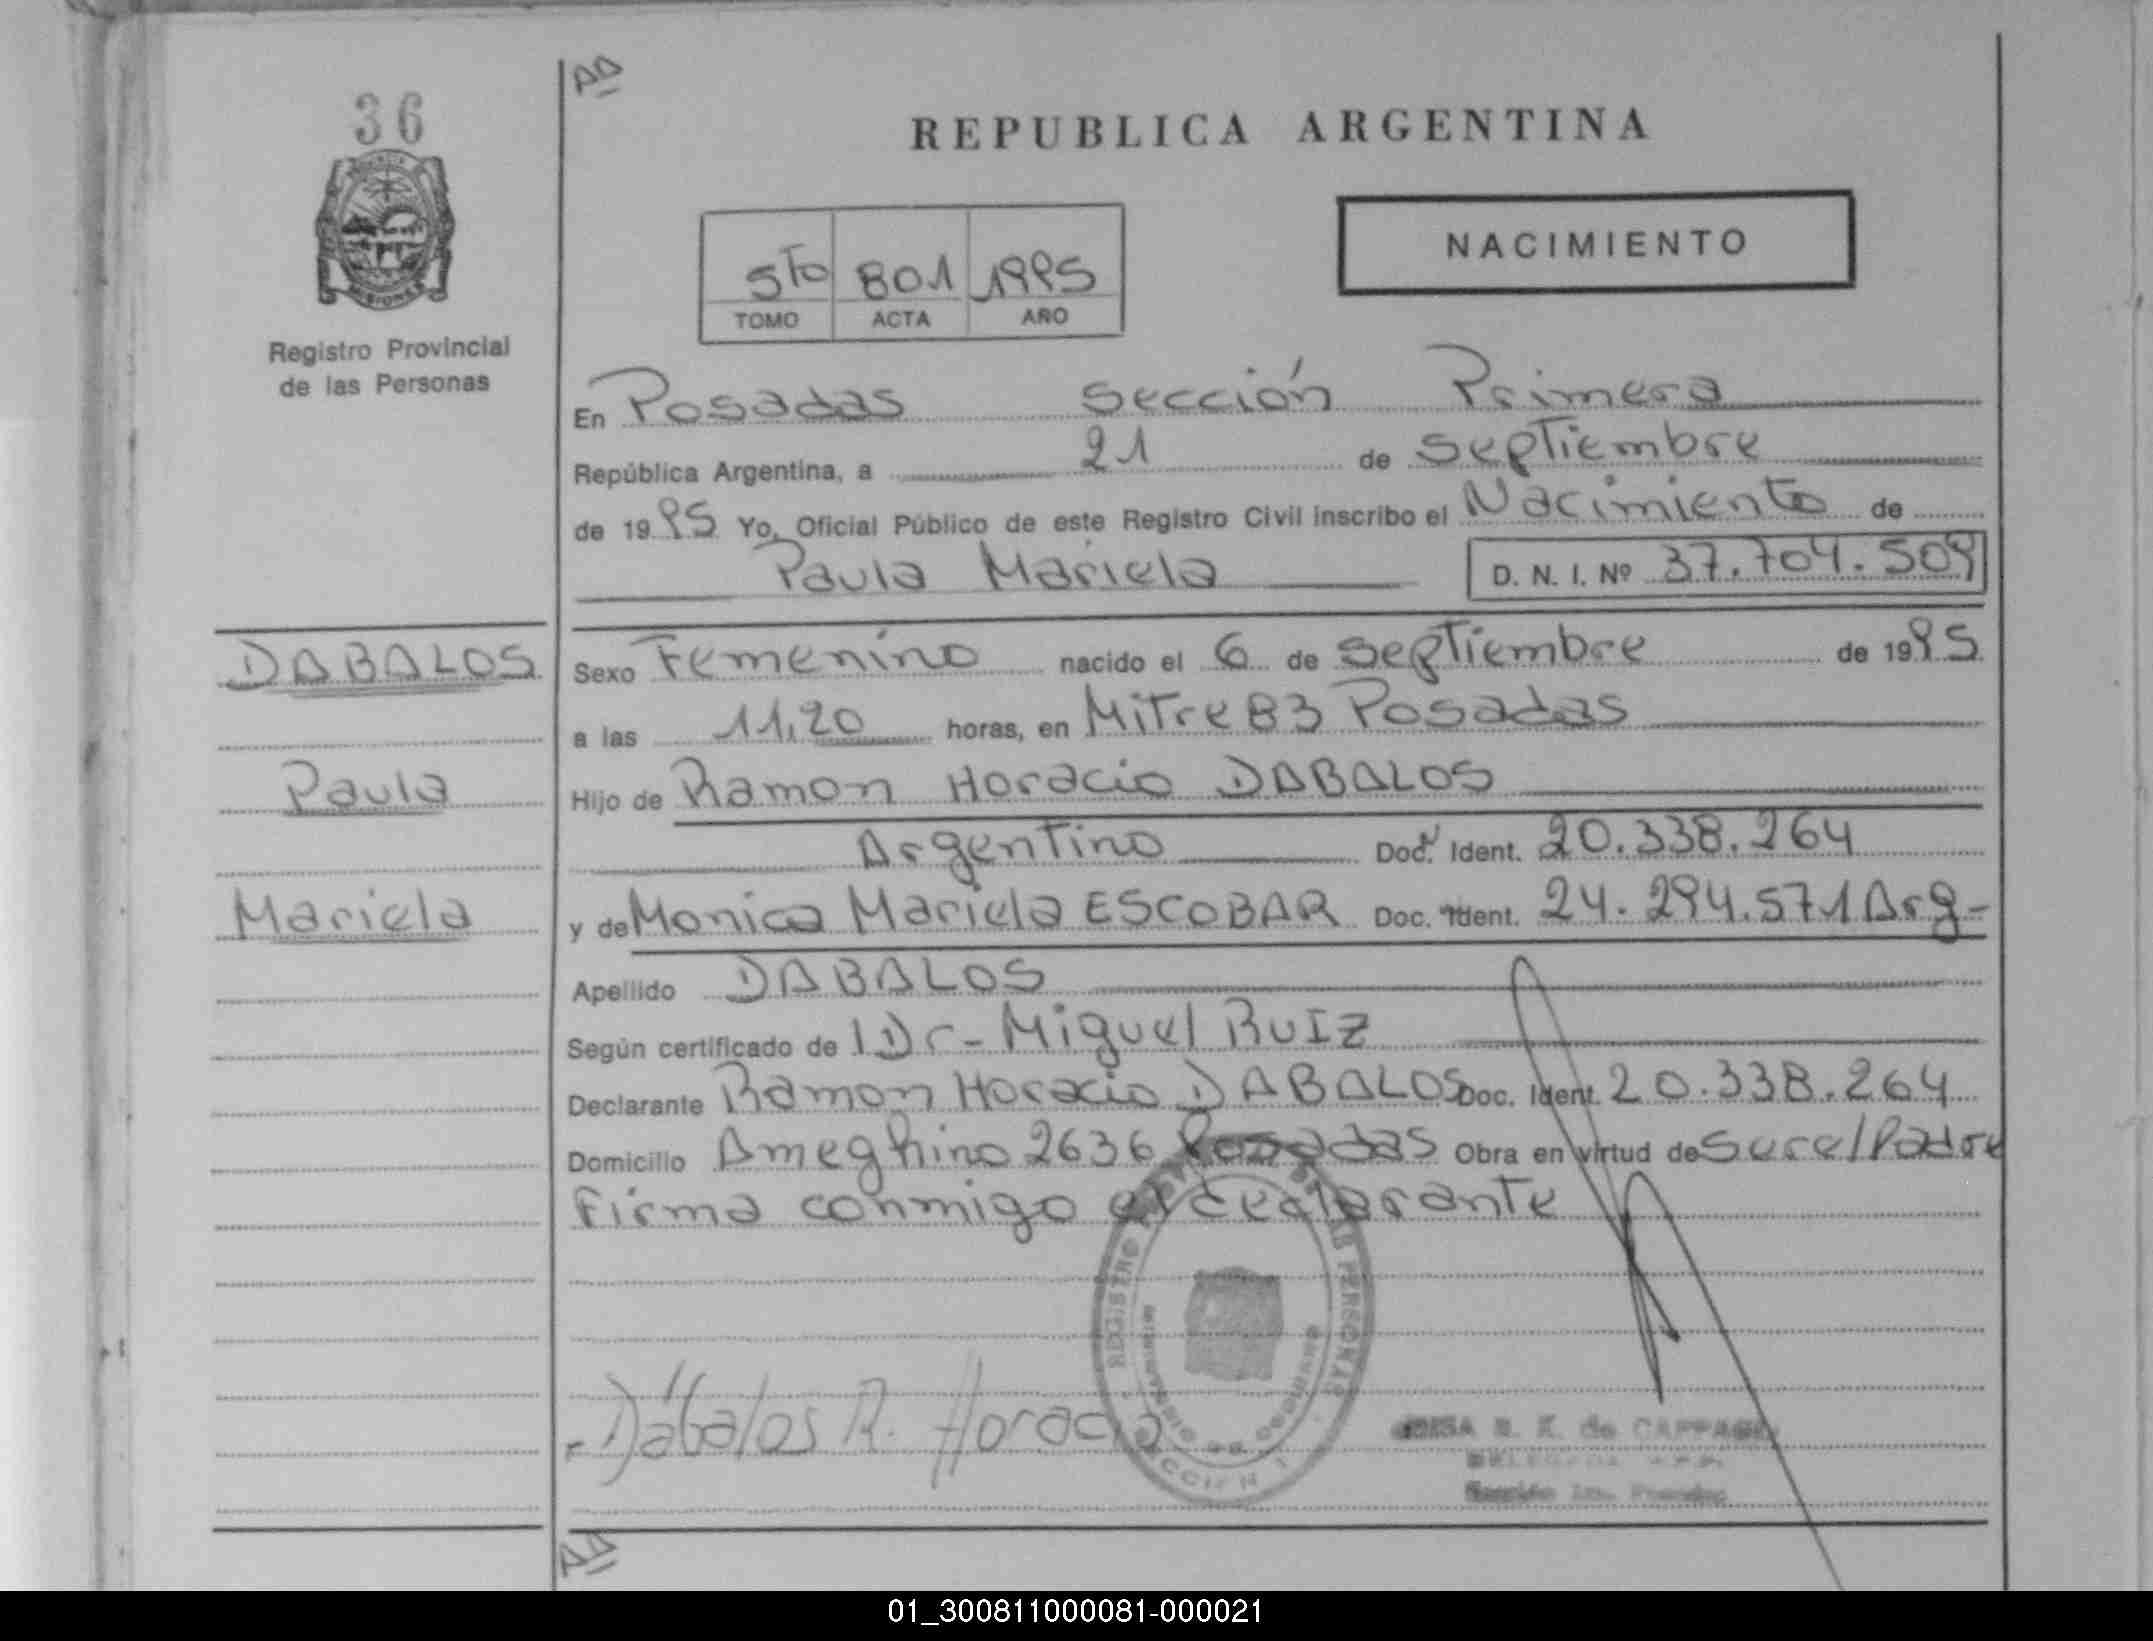 AD
36
REPUBLICA ARGENTINA
NACIMIENTO
5to 801 1995
TOMO ACTA AÑO
MISIONES
Registro Provincial
de las Personas
En Posadas sección Primera
República Argentina, a 21 de septiembre
de 1995 Yo, Oficial Público de este Registro Civil inscribo el Nacimiento de
Paula Mariela D. N. I. Nº 37.704.509
DABALOS
Paula
Mariela
Sexo Femenino nacido el 6 de septiembre de 1995
a las 11,20 horas, en Mitre 83 Posadas
Hijo de Ramon Horacio DABALOS
Argentino Doc. Ident. 20.338.264
y de Monica Mariela ESCOBAR Doc. Ident. 24.294.571 Arg-
Apellido DABALOS
Según certificado de Dr- Miguel RUIZ
Declarante Ramon Horacio DABALOS Doc. Ident. 20.338.264
Domicilio Ameghino 2636 Posadas Obra en virtud de ser el Padre
Firma conmigo el declarante
REGISTRO PERSONAS
SECCION 1
Dábalos R. Horacio
de CAPPAGLI
AD
01_300811000081-000021